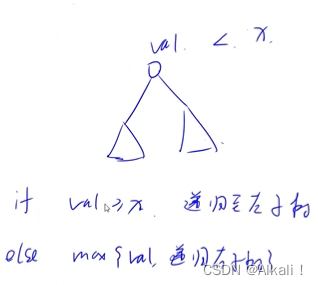 val. < x.
if val ≥ x. 递归至左子树
else max{val, 递归右子树}
CSDN @Alkali！